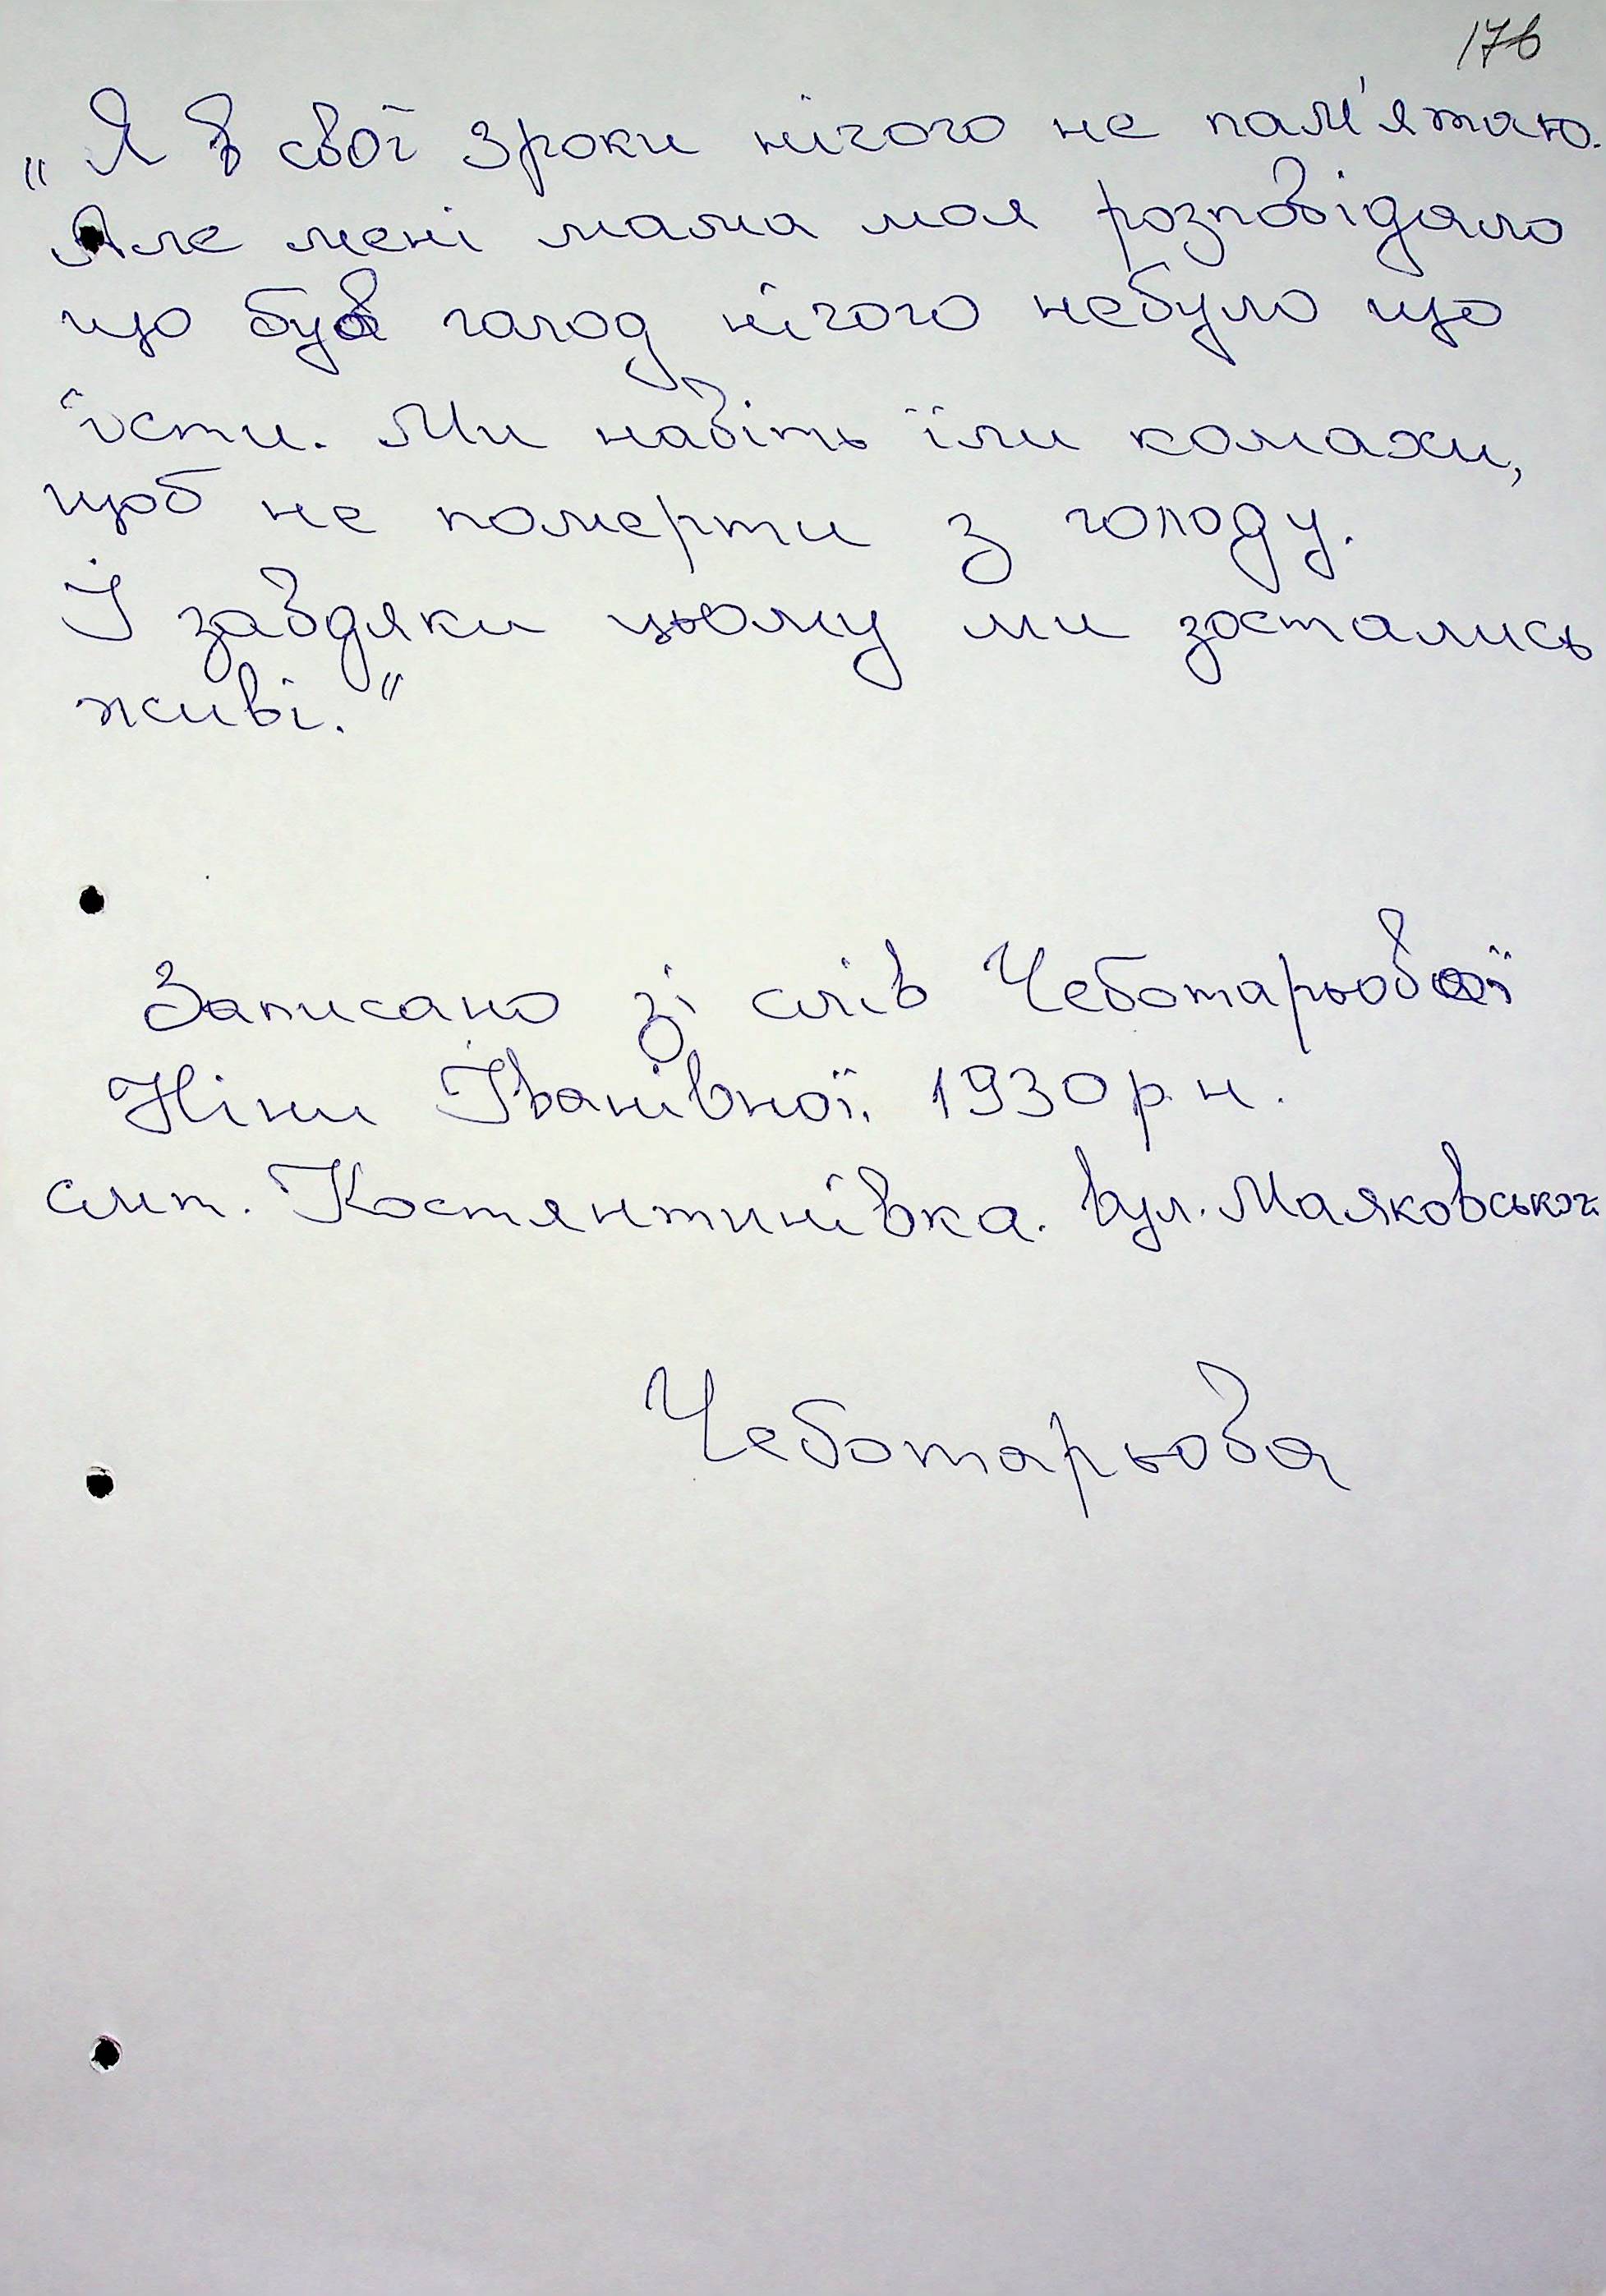 176
„Я в свої 3роки нічого не пам'ятаю.
Але мені мама моя розповідало
що був голод нічого небуло що
їсти. Ми навіть їли комахи,
щоб не померти з голоду.
І завдяки цьому ми зостались
живі."
Записано зі слів Чеботарьової
Ніни Іванівної. 1930р.н.
смт. Костянтинівка. вул. Маяковського
Чеботарьова